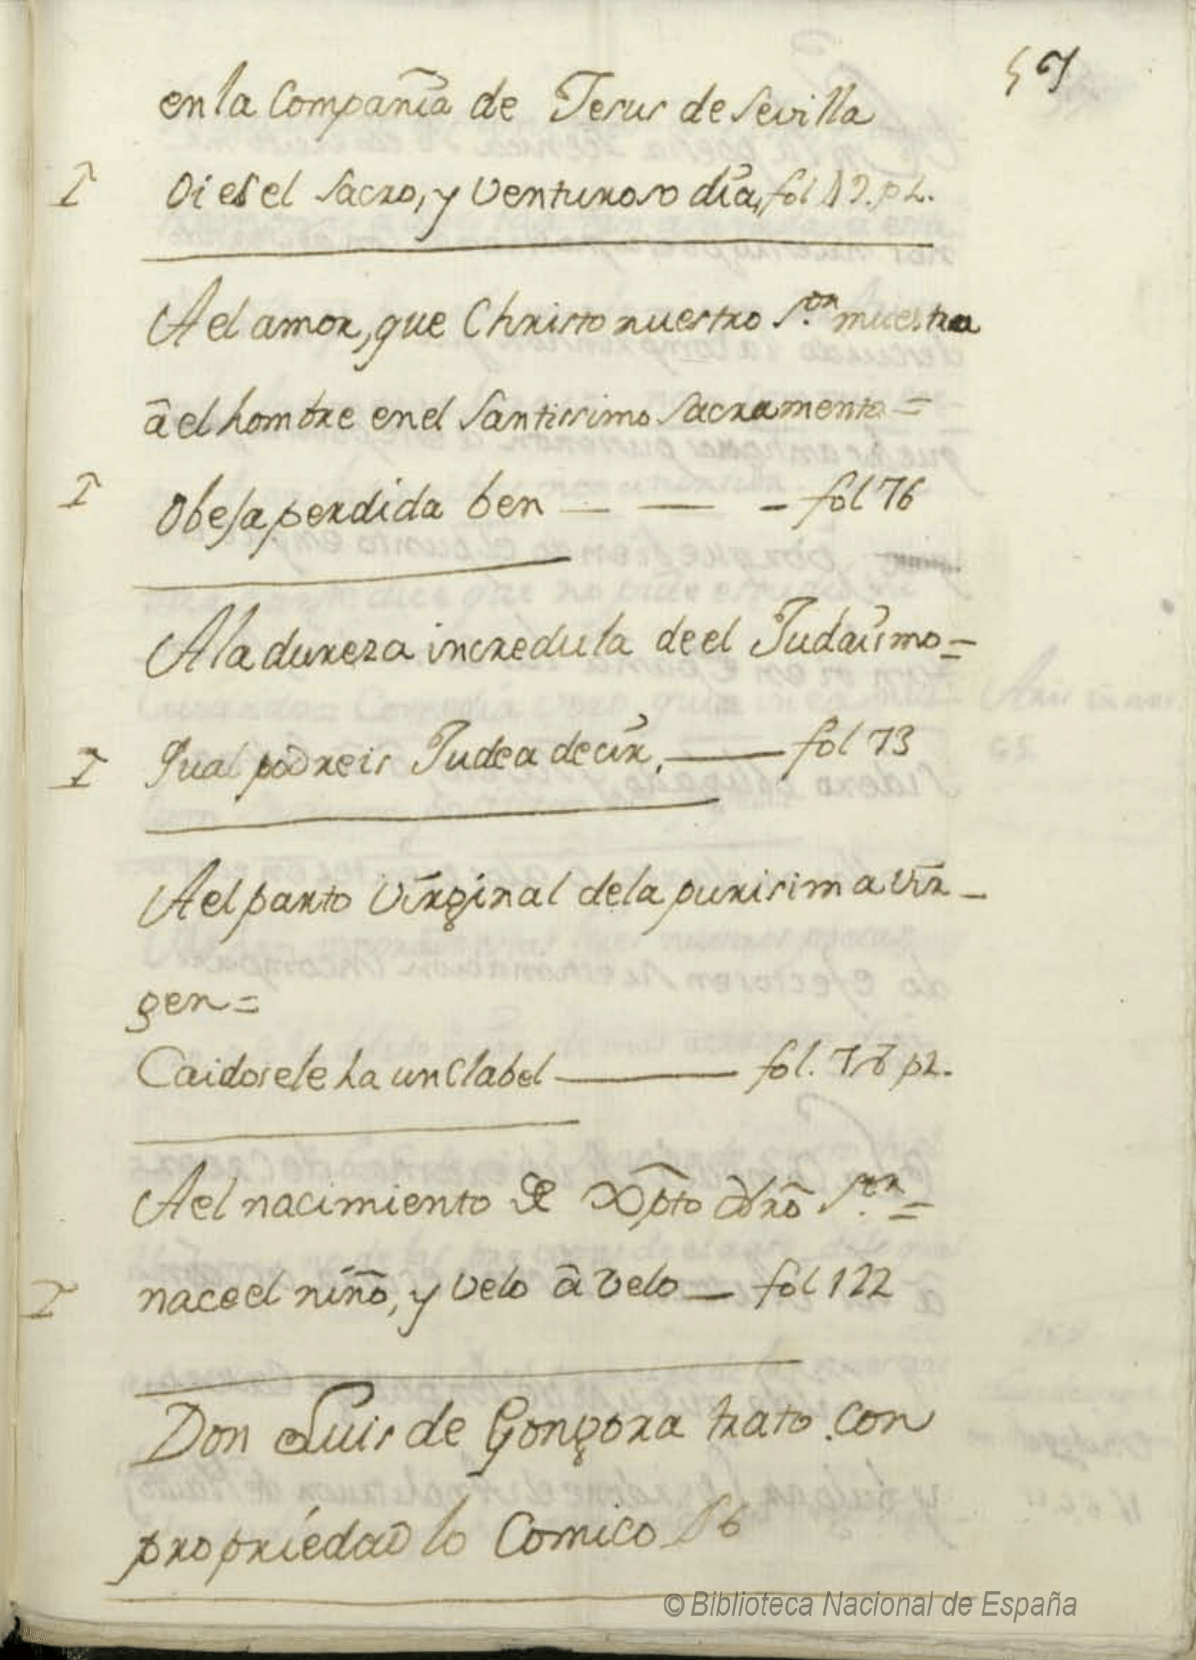 57
en la Compañia de Jesus de Sevilla
I Oi es el sacro, y venturoso dia, fol 19. p 2.
A el amor, que Christo nuestro S.or muestra
â el hombre en el santissimo sacramento =
I Obeja perdida ben — — — fol 76
A la dureza incredula de el Judaismo =
I Qual podreis Judea decir, — fol 73
A el parto virginal de la purisima vir -
gen =
Caidosele ha un clabel — fol. 78 p 2.
A el nacimiento de Xpto nrõ S.or =
I nace el niño, y velo â velo — fol 122
Don Luis de Gongora trato con
propriedad lo Comico
© Biblioteca Nacional de España